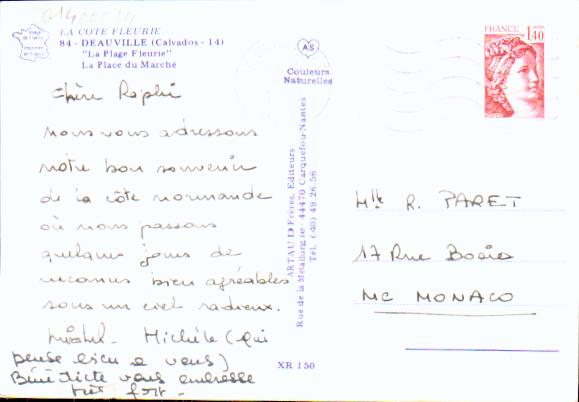 LA COTE FLEURIE
84 - DEAUVILLE (Calvados - 14)
"La Plage Fleurie"
La Place du Marché
AS
Couleurs
Naturelles
FRANCE
1,40
Chère Raphi
nous vous adressons
notre bon souvenir
de la côte normande
où nous passons
quelques jours de
vacances bien agréables
sous un ciel radieux.
Michel - Michèle (qui
pense bien à vous)
Bénédicte vous embrasse
très fort -
ARTAUD Frères, Editeurs
Rue de la Métallurgie - 44470 Carquefou-Nantes
Tél. (40) 49.26.56
Mlle R. PARET
17 Rue Bosio
MC MONACO
XR 150